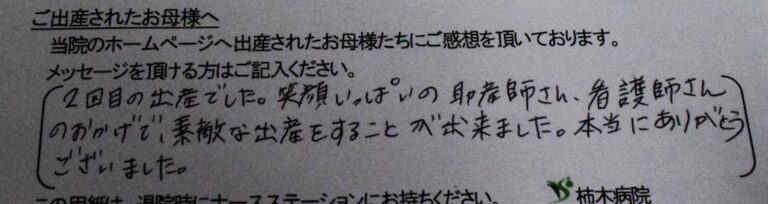 ご出産されたお母様へ
当院のホームページへ出産されたお母様たちにご感想を頂いております。
メッセージを頂ける方はご記入ください。
2回目の出産でした。笑顔いっぱいの助産師さん、看護師さん
のおかげで、素敵な出産をすることが出来ました。本当にありがとう
ございました。
この用紙は、退院時にナースステーションにお持ちください。 柿木病院